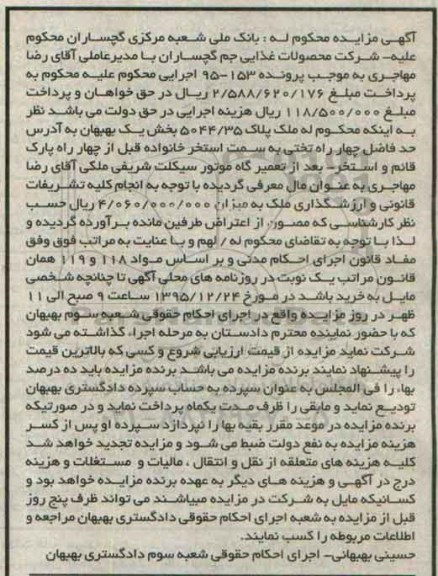 آگهی مزایده محکوم له : بانک ملی شعبه مرکزی گچساران محکوم
علیه- شرکت محصولات غذایی جم گچساران با مدیرعاملی آقای رضا
مهاجری به موجب پرونده ۱۵۳-۹۵ اجرایی محکوم علیه محکوم به
پرداخت مبلغ ۲/۵۸۸/۶۲۰/۱۷۶ ریال در حق خواهان و پرداخت
مبلغ ۱۱۸/۵۰۰/۰۰۰ ریال هزینه اجرایی در حق دولت می باشد نظر
به اینکه محکوم له ملک پلاک ۵۰۴۴/۳۵ بخش یک بهبهان به آدرس
حد فاصل چهار راه تختی به سمت استخر خانواده قبل از چهار راه پارک
قائم و استخر، بعد از تعمیر گاه موتور سیکلت شریفی ملکی آقای رضا
مهاجری به عنوان مال معرفی گردیده با توجه به انجام کلیه تشریفات
قانونی و ارزشگذاری ملک به میزان ۴/۰۶۰/۰۰۰/۰۰۰ ریال حسب
نظر کارشناسی که مصون از اعتراض طرفین مانده برآورده گردیده و
لذا با توجه به تقاضای محکوم له / لهم و با عنایت به مراتب فوق وفق
مفاد قانون اجرای احکام مدنی و بر اساس مواد ۱۱۸ و ۱۱۹ همان
قانون مراتب یک نوبت در روزنامه های محلی آگهی تا چنانچه شخصی
مایل به خرید باشد در مورخ ۱۳۹۵/۱۲/۲۴ ساعت ۹ صبح الی ۱۱
ظهر در روز مزایده واقع در اجرای احکام حقوقی شعبه سوم بهبهان
که با حضور نماینده محترم دادستان به مرحله اجرا، گذاشته می شود
شرکت نماید مزایده از قیمت ارزیابی شروع و کسی که بالاترین قیمت
را پیشنهاد نمایند برنده مزایده می باشد برنده مزایده باید ده درصد
بها، را فی المجلس به عنوان سپرده به حساب سپرده دادگستری بهبهان
تودیع نماید و مابقی را ظرف مدت یکماه پرداخت نماید و در صورتیکه
برنده مزایده در موعد مقرر بقیه بها را نپردازد سپرده او پس از کسر
هزینه مزایده به نفع دولت ضبط می شود و مزایده تجدید خواهد شد
کلیه هزینه های متعلقه از نقل و انتقال ، مالیات و مستغلات و هزینه
درج در آگهی و هزینه های دیگر به عهده برنده مزایده خواهد بود و
کسانیکه مایل به شرکت در مزایده میباشند می تواند ظرف پنج روز
قبل از مزایده به شعبه اجرای احکام حقوقی دادگستری بهبهان مراجعه و
اطلاعات مربوطه را کسب نمایند.
حسینی بهبهانی- اجرای احکام حقوقی شعبه سوم دادگستری بهبهان